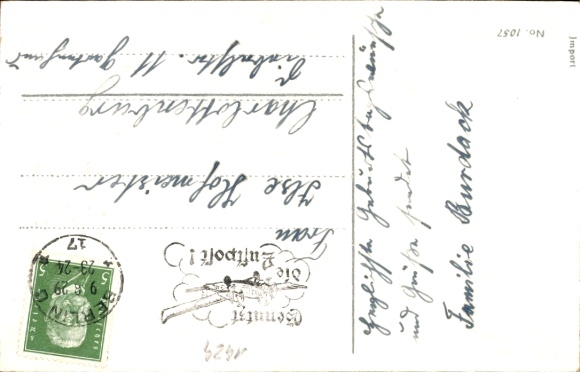 Herzlichste Geburtstagswünsche
und Grüße sendet
Familie Burdack
Frau
Ilse Hofmeister
Charlottenburg
11 Gartenhaus
Benutzt
die
Luftpost!
BERLIN
17
23-24
5
5
1929
No. 1057
Import